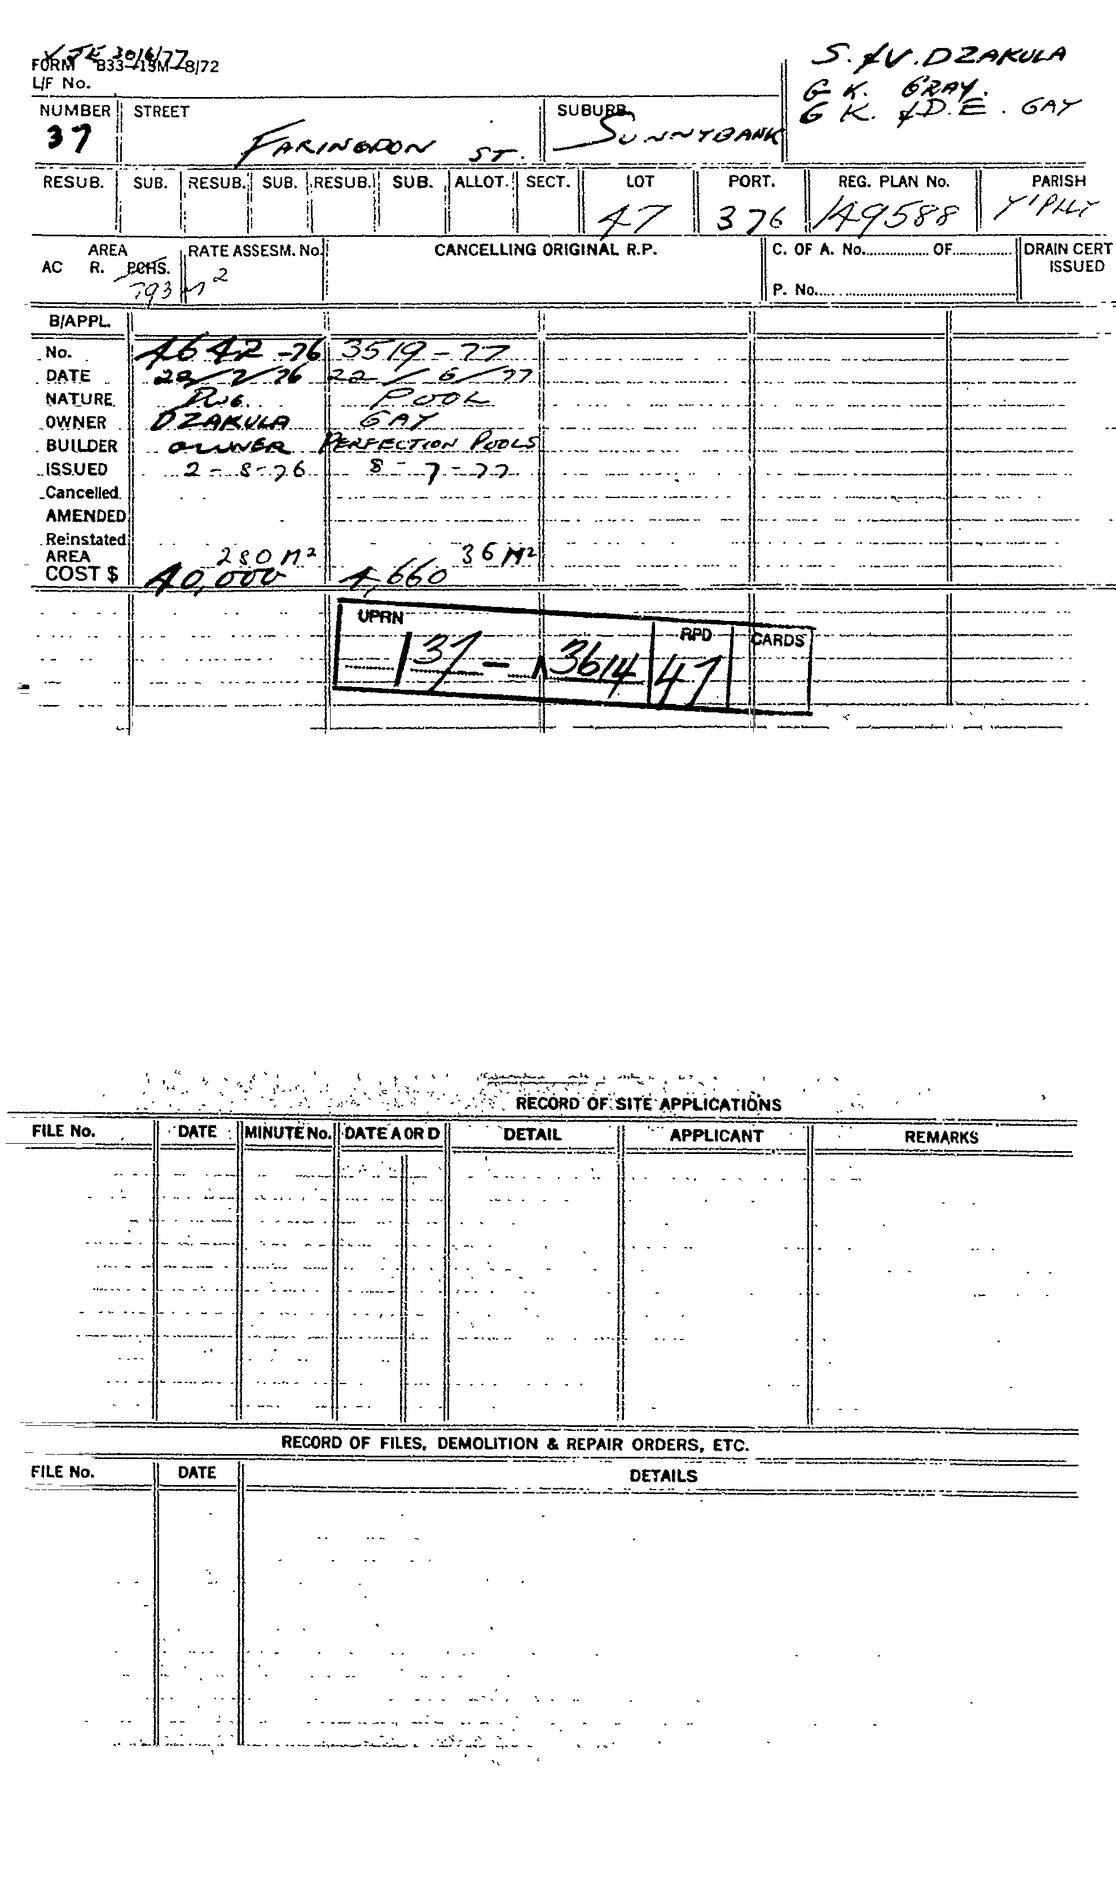 ✓ JE 30/6/77
FORM B33-15M-8/72
L/F No.
S. & V. DZAKULA
G K. GRAY.
G K. & D. E. GAY
NUMBER STREET SUBURB
37 FARINGDON ST. SUNNYBANK
RESUB. SUB. RESUB. SUB. RESUB. SUB. ALLOT. SECT. LOT PORT. REG. PLAN No. PARISH
47 376 149588 Y'PILLY
AREA RATE ASSESM. No. CANCELLING ORIGINAL R.P. C. OF A. No. OF DRAIN CERT
AC R. PCHS. ISSUED
793 m2 P. No.
B/APPL.
No. 4642-76 3519-77
DATE 20/7/76 22/6/77
NATURE POOL
OWNER DZAKULA GAY
BUILDER OWNER PERFECTION POOLS
ISSUED 2-8-76 8-7-77
Cancelled
AMENDED
Reinstated
AREA 280 M2 36 M2
COST $ 40,000 4,660
UPRN RPD CARDS
37 - 3614 47
RECORD OF SITE APPLICATIONS
FILE No. DATE MINUTE No. DATE A OR D DETAIL APPLICANT REMARKS
RECORD OF FILES, DEMOLITION & REPAIR ORDERS, ETC.
FILE No. DATE DETAILS